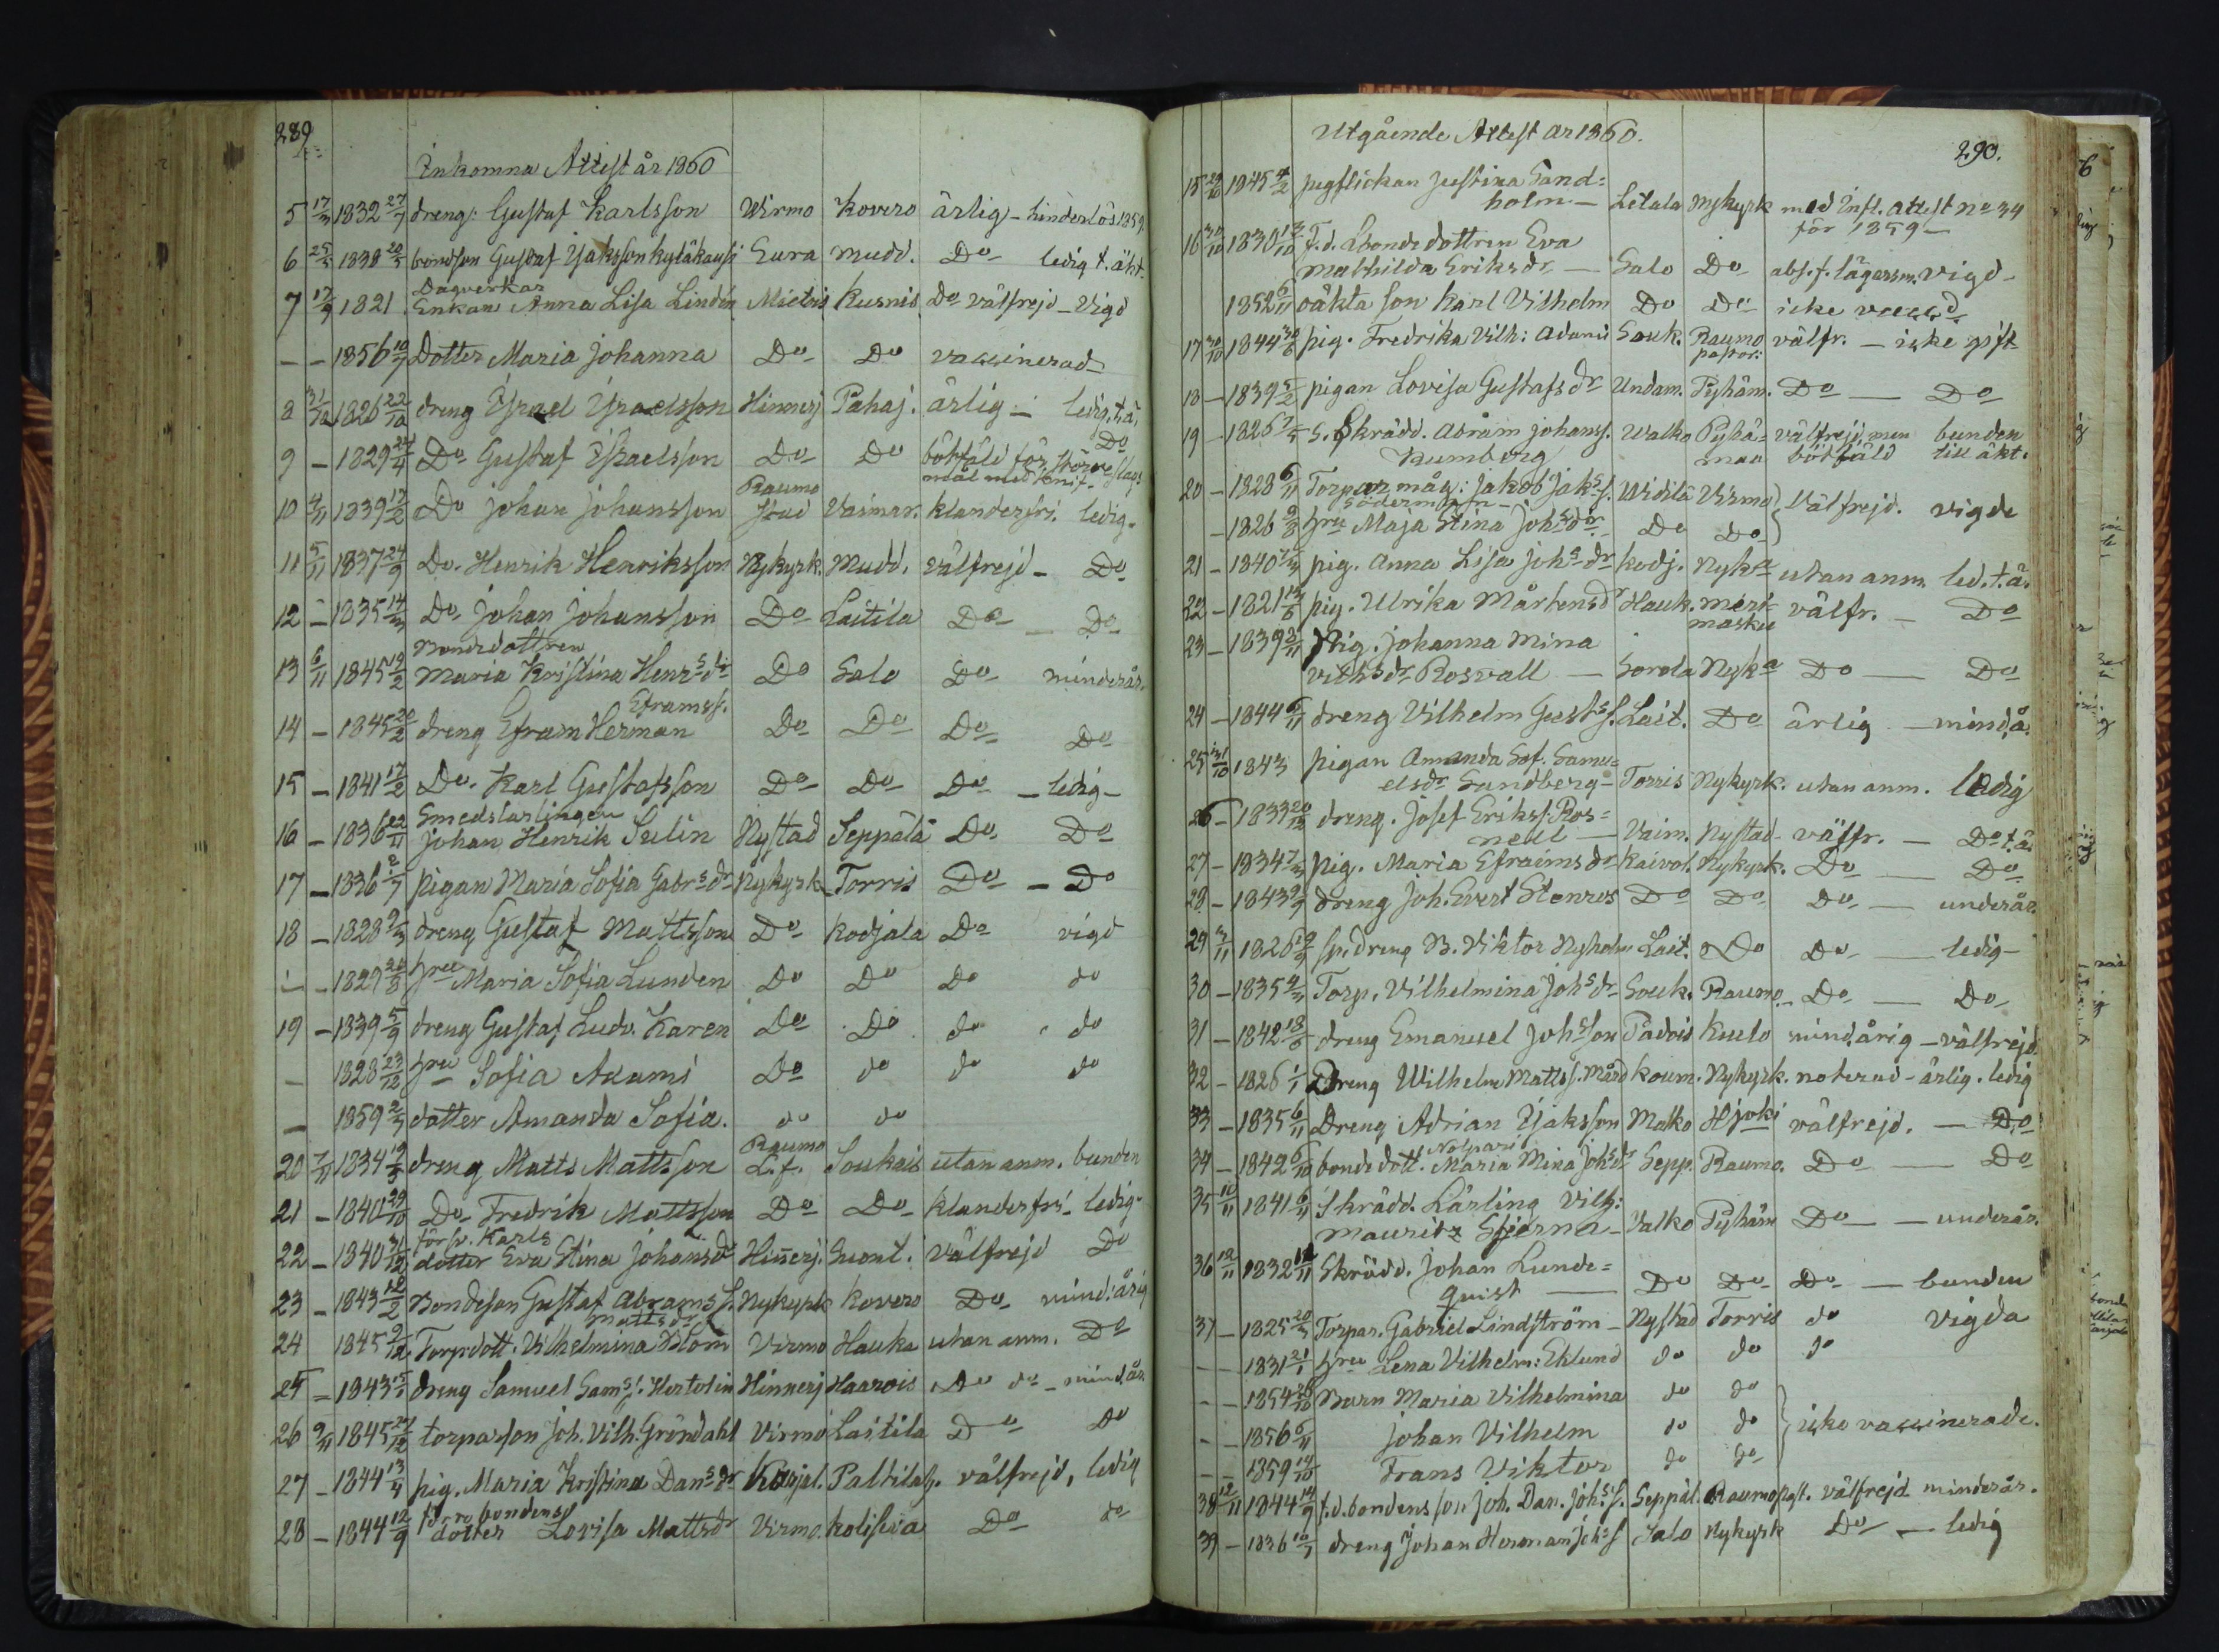 289
Inkomna Attest år 1860
5 17/3 1832 27/7 dreng: Gustaf Karlsson Wirmo Kovero ärlig - hinderlös 1859.
6 25/5 1838 20/5 bondson Gustaf Isaksson kyläkauski Eura mudd. Do ledig t. äkt.
Dagverkar
7 17/9 1821 Enkan Anna Lisa Lindén Mietois Kusnis Do välfrejd - Vigd
- - 1856 10/7 Dotter Maria Johanna Do Do vaccinerad
8 31/10 1826 22/10 dreng Israel Israelsson Hinnerj Pahaj. ärlig - ledig, t. ä,
9 - 1829 24/4 Do Gustaf Israelsson Do Do botfäld för större slags Do
mål med knif
Raumo
10 4/11 1839 17/2 Do Johan Johansson Stad Vaimar. klanderfri. ledig.
11 5/11 1837 24/9 Do. Henrik Henriksson Nykyrk. Mudd. välfrejd - Do
12 - 1835 14/3 Do Johan Johansson Do Laitila Do - Do
Bondedottren
13 6/11 1845 19/2 Maria Kristina Henrs dr Do Salo Do minderår.
Eframss.
14 - 1845 20/2 dreng Efraim Herman Do Do Do Do
15 - 1841 17/2 Do. Karl Gustafsson Do Do Do - ledig -
Smedslärlingen
16 - 1836 22/11 Johan Henrik Sulin Nystad Seppälä Do Do
17 - 1836 2/7 pigan Maria Sofia Gabrs dr Nykyrk Torris Do - Do
18 - 1828 9/3 dreng Gustaf Mattsson Do Kodjala Do vigd
- - 1829 26/8 hru Maria Sofia Lunden Do Do Do do
19 - 1839 5/9 dreng Gustaf Ludv. Karen Do Do do do
- 1828 23/12 hru Sofia Adami Do do do do
- 1859 2/3 dotter Amanda Sofia. do do
Raumo
20 7/11 1834 19/5 dreng Matts Mattsson L.f. Soukais utan anm. bunden
21 - 1840 29/10 Do Fredrik Mattsson Do Do klanderfri - ledig
försv. Karls
22 - 1840 31/12 dotter Eva Stina Johansdr Hinerj. Suont. välfrejd Do
23 - 1843 16/2 Bondeson Gustaf Abramss. Nykyrk Kovero Do mind. årig
Mattsdr
24 1845 9/12 Torpdott. Vilhelmina Blom Virmo Hauka utan anm. Do
25 - 1843 15/1 dreng Samuel Sams s. Hertolin Hinnerj Haarois Do do - mind. år.
26 9/11 1845 27/12 torparson Joh. Vilh. Gröndahl Virmo Laitila Do Do
27 - 1844 13/4 pig. Maria Kristina Dans dr Karjal. Palttilah. välfrejd, ledig
bondens
28 - 1844 12/9 dotter Lovisa Mattsdr Virmo. Koliseva Do do
Utgående Attest år 1860.
290.
15 29/10 1845 4/2 pigflickan Justina Sand=
holm - Letala Nykyrk med Infl. attest No 34
för 1859 -
16 30/10 1830 13/10 F.d. Lbondedottren Eva
Mathilda Eriksdr - Salo Do abs. f. lägersm. vigd -
1852 6/11 oäkta son Karl Vilhelm Do Do icke vaccd
17 30/10 1844 30/6 pig. Fredrika Vilh: Adami Souk. Raumo välfr. - icke gift
pastor:
18 - 1839 5/2 pigan Lovisa Gustafsdr Undam. Pyhäm. Do - Do
19 - 1826 7/5 S. Skrädd. Abram Johanss. Walko Pyhä= välfrejd, men bunden
Kumberg maa bötfäld till äkt.
20 - 1828 6/11 Torpar måg: Jakob Jaks s. Widilä Virmo
Södermalm Välfrejd. vigde
- 1826 9/8 hru Maja Stina Johs dr Do Do
21 - 1840 7/3 pig. Anna Lisa Johs dr Kodj. Nyka utan anm. led. t. ä.
22 - 1821 13/6 pig. Ulrika Mårtensdr Hauk. meri- välfr. - Do
masku
23 - 1839 2/11 Pig. Johanna Mina
Vilhs dr Rosvall - Sorola Nyka Do - Do
24 - 1844 6/11 dreng Vilhelm Gusts s. Lait. Do ärlig - mind. å.
25 31/10 1843 pigan Amanda Sof. Samu=
elsdr Sandberg - Torris Nykyrk. utan anm. ledig
26 - 1833 20/12 dreng. Josef Eriks s. Ros=
nell - Vaim. Nystad - välfr. - Do t. ä.
27 - 1834 7/3 pig. Maria Efraimsdr Kaivol. Nykyrk. Do - Do
28 - 1843 9/9 dreng Joh. Evert Stenros Do Do Do - underår.
29 3/11 1826 19/9 sp. dreng B. Viktor Nyholm Lait. Do Do - ledig -
30 - 1835 4/3 Torp. Vilhelmina Johs dr Souk. Raumo - Do - Do
31 - 1842 18/6 dreng Emanuel Johsson Padois Kulo mind. årig - välfrejd.
32 - 1826 1/1 Dreng Wilhelm Matts s. Mård Koum. Nykyrk. noterad - ärlig. ledig
33 - 1835 6/11 Dreng Adrian Isaksson Malko Hjoki välfrejd. - Do
Nolpari
34 - 1842 6/10 bondedott. Maria Mina Johs dr Sepp. Raumo. Do - Do
35 10/11 1841 6/11 Skrädd. Lärling Vilh:
Mauritz Stjerna - Valko Pyhäm Do - - underår.
36 12/11 1832 12/11 Skrädd. Johan Lunde=
quist - Do Do Do - bunden
37 - 1825 20/3 Torpar. Gabriel Lindström - Nystad Torris do vigda
- - 1831 21/1 hru Lena Vilhelm: Eklund do do do
- - 1854 26/10 Barn Maria Vilhelmina do do
- - 1856 6/11 Johan Vilhelm do do icke vaccinerade.
- - 1859 14/10 Frans Viktor do do
38 12/11 1844 14/9 f.d. bondens son Joh. Dan. Johs s. Seppäl. Raumo past. välfrejd minderår.
39 - 1836 10/7 dreng Johan Herman Johs s Salo Nykyrk Do - ledig